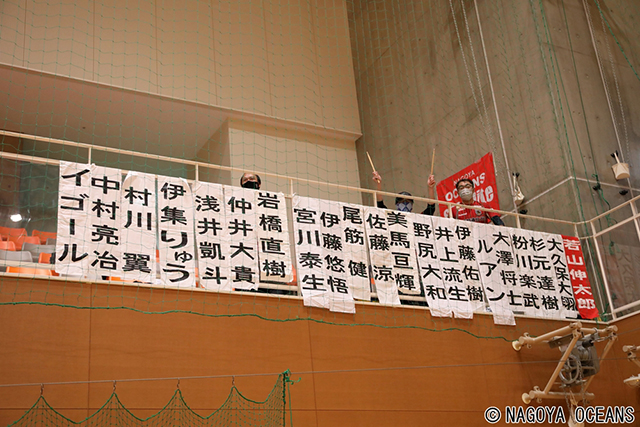 NAGOYA
OCEANS
若山伸太郎
大久保大翔
杉元
粉川
大澤将士
ルアン
伊藤佑樹
井上流生
野尻大和
美馬亘輝
佐藤涼
尾筋健
伊藤悠悟
宮川泰生
岩橋直樹
仲井大貴
浅井凱斗
伊集りゅう
村川翼
中村亮治
イゴール
© NAGOYA OCEANS